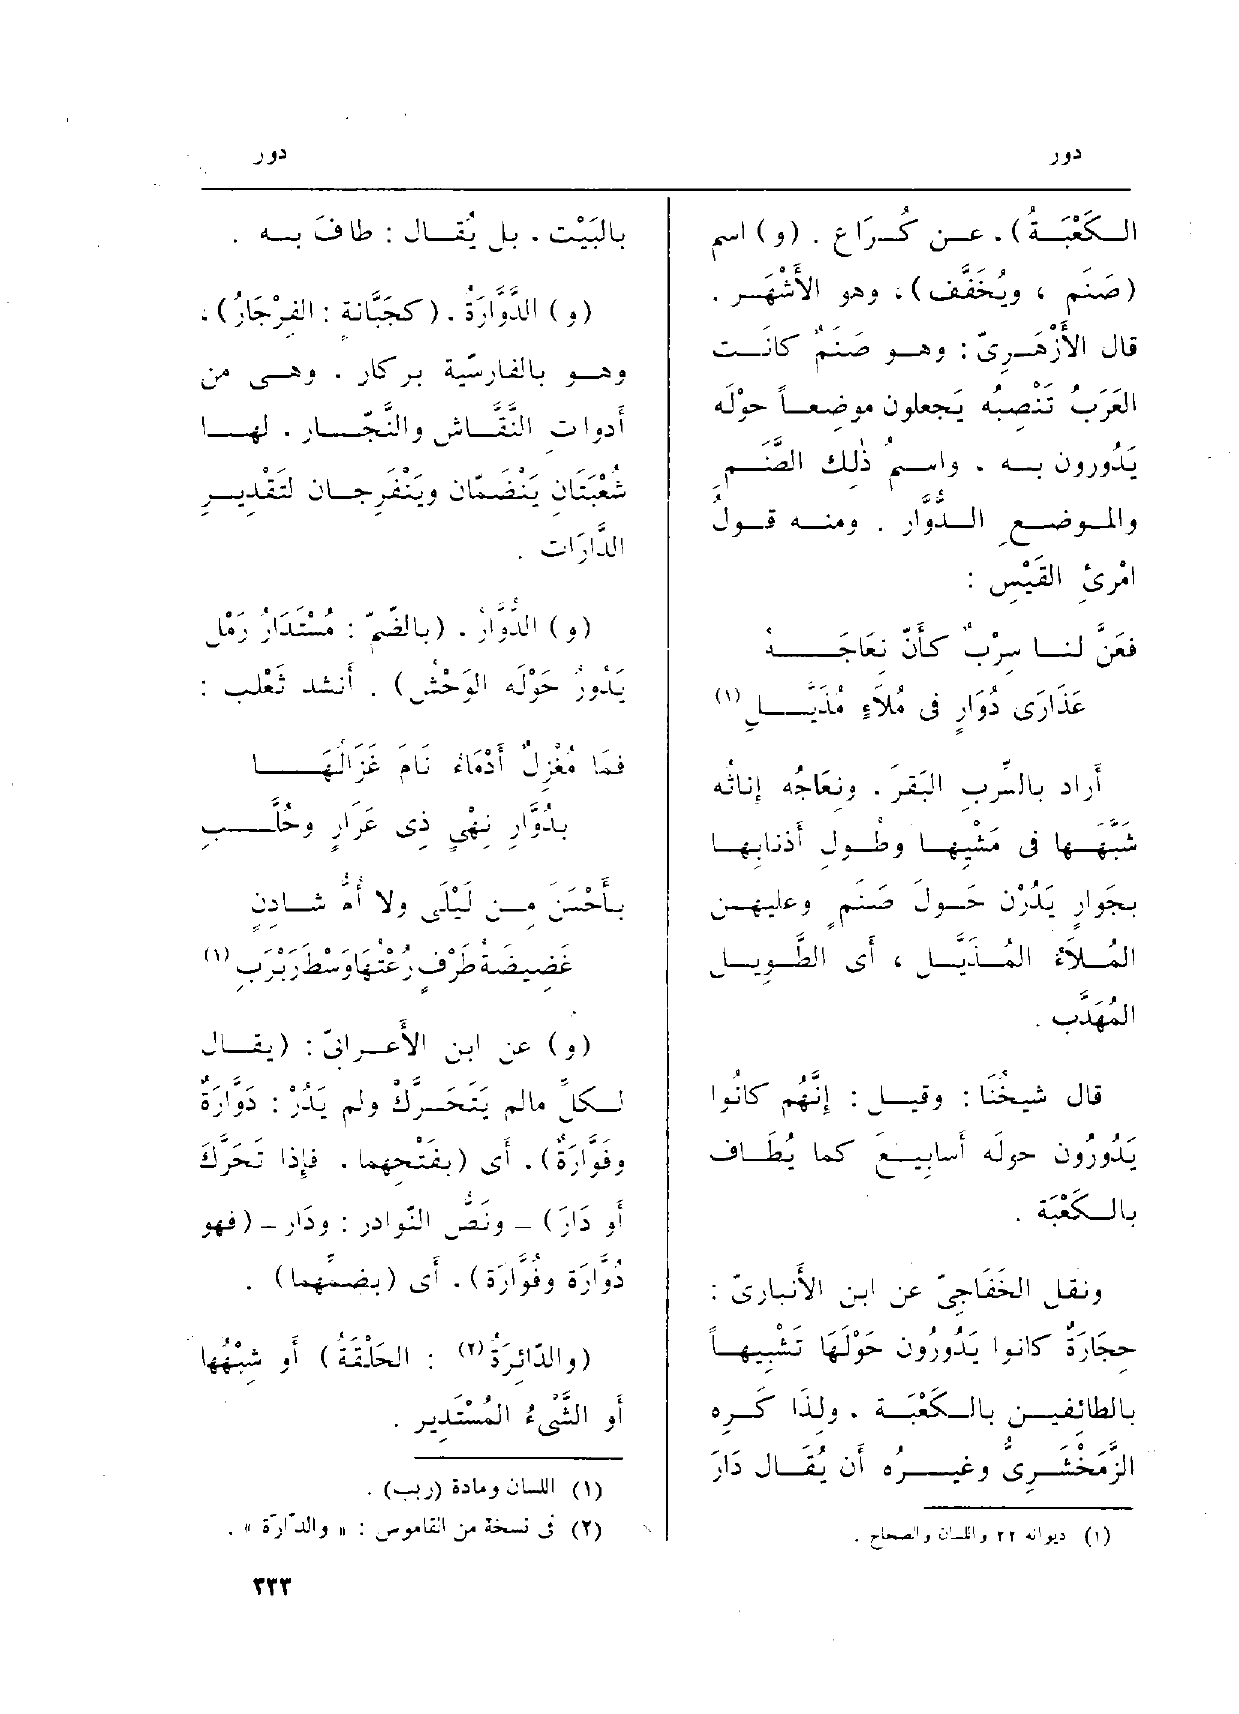 دور
دور
الكَعْبَةُ). عن كُرَاع . (و) اسم
(صَنَم ، ويُخَفَّف)، وهو الأَشْهَر .
قال الأَزْهَرِىّ : وهو صَنَمٌ كانَت
العَرَبُ تَنْصِبُه يَجعلون موضعاً حَوْلَه
يَدُورون به . واسمُ ذٰلك الصَّنَم
والموضعِ الدُّوَّار . ومنه قولُ
امْرِئِ القَيْسِ :
فعَنَّ لنا سِرْبٌ كأَنّ نِعَاجَهُ
عَذَارَى دُوَارٍ فى مُلاَءٍ مُذَيَّلِ (١)
أَراد بالسِّربِ البَقَرَ . ونِعَاجُه إِناثُه
شَبَّهَها فى مَشْيِها وطُولِ أَذنابِها
بِجَوارٍ يَدُرْن حَولَ صَنَمٍ وعليهن
المُلاَءُ المُذَيَّل ، أَى الطَّوِيل
المُهَدَّب .
قال شيخُنَا : وقيل : إِنَّهُم كانُوا
يَدُورُون حولَه أَسابِيعَ كما يُطَاف
بالكَعْبَة .
ونقل الخَفَاجِىّ عن ابن الأَنبارىّ :
حِجَارَةٌ كانوا يَدُورُون حَوْلَهَا تَشْبِيهاً
بالطائِفِين بالكَعْبَة . ولذَا كَرِه
الزَّمَخْشَرِىُّ وغيرُه أَن يُقَال دَارَ
(١) ديوانه ٢٢ واللسان والصحاح .
بالبَيْت . بل يُقَال : طافَ به .
(و) الدَّوَّارَةُ . (كجَبَّانة : الفِرْجَارُ)،
وهو بالفارسّية بركار . وهى من
أَدواتِ النَّقَّاش والنَّجَّار . لها
شُعْبَتَانِ يَنْضَمّان ويَنْفَرِجان لتَقْدِير
الدَّارَات .
(و) الدُّوَّارُ . (بالضّمّ : مُسْتَدَارُ رَمْلٍ
يَدُورُ حَوْلَه الوَحْشُ) . أَنشد ثَعْلب :
فمَا مُغْزِلٌ أَدْمَاءُ نَامَ غَزَالُهَا
بدُوَّارِ نِهْىٍ ذِى عَرَارٍ وحُلَّبِ
بأَحْسَنَ من لَيْلَى ولا أُمُّ شادِنٍ
غَضِيضَةُ طَرْفٍ رُعْتُهَا وَسْطَ رَبْرَبِ (١)
(و) عن ابن الأَعرابىّ : (يقال
لكلِّ مالم يَتَحَرَّكْ ولم يَدُرْ : دَوَّارَةٌ
وفَوَّارَةٌ). أَى (بفَتْحِهما . فإِذا تَحَرَّكَ
أَو دَارَ) – ونَصُّ النّوادر : ودَار – (فهو
دُوَّارَة وفُوَّارَة). أَى (بضمِّهما) .
(والدّائِرَةُ (٢) : الحَلْقَةُ) أَو شِبْهُها
أَو الشَّىْءُ المُسْتَدِير .
(١) اللسان ومادة (ربب) .
(٢) فى نسخة من القاموس : « والدَّارَة » .
٣٣٣